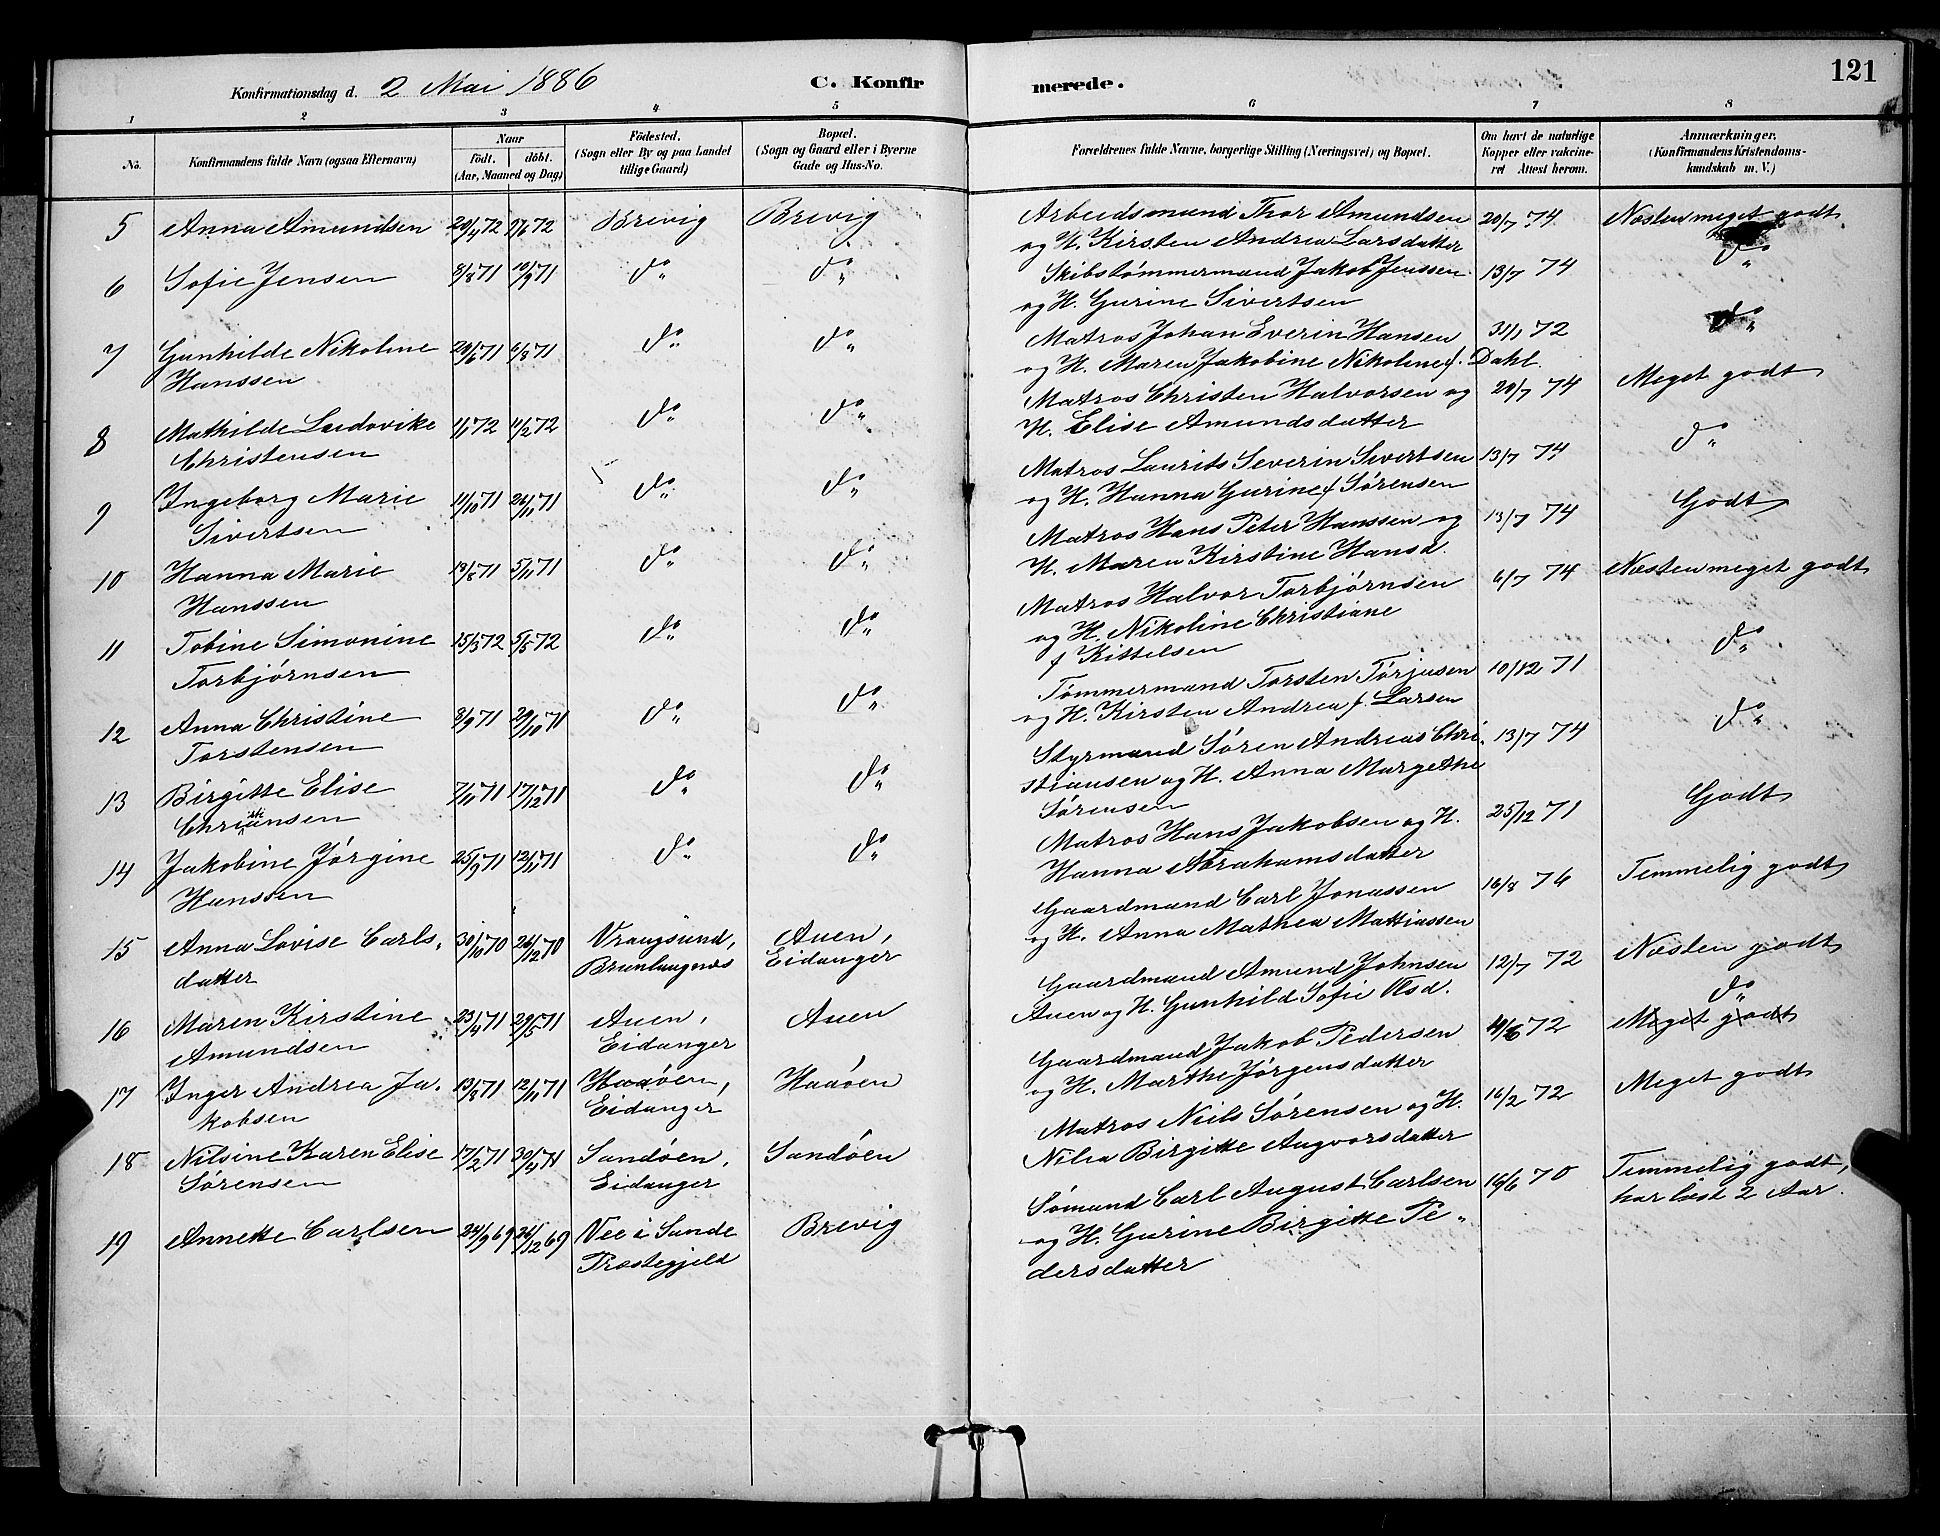 Konfirmationsdag d. 2 Mai 1886 C. Konfir merede. 121
1 2 3 4 5 6 7 8
No. Konfirmandens fulde Navn (ogsaa Efternavn) Naar födt. döbt. (Aar, Maaned og Dag) Födested. (Sogn eller By og paa Landet tillige Gaard) Bopæl. (Sogn og Gaard eller i Byerne Gade og Hus-No. Forældrenes fulde Navne, borgerlige Stilling (Næringsvei) og Bopæl. Om havt de naturlige Kopper eller vakcineret Attest herom. Anmærkninger. (Konfirmandens Kristendomskundskab m. V.)
5 Anna Amundsen 20/4 72 9/6 72 Brevig Brevig Arbeidsmand Thor Amundsen 20/7 74 Næsten meget godt
og H. Kirsten Andrea Larsdatter
6 Sofie Jensen 8/8 71 10/9 71 do do Skibstømmermand Jakob Jenssen 13/7 74 do
og H. Gurine Sivertsen
7 Gunhilde Nikoline 20/6 71 6/8 71 do do Matros Johan Everin Hansen 31/1 72 do
Hanssen og H. Maren Jakobine Nikoline f. Dahl.
8 Mathilde Ludovike 1/1 72 11/2 72 do do Matros Christen Halvorsen og 20/7 74 Meget godt
Christensen H. Elise Amundsdatter
9 Ingeborg Marie 11/10 71 26/11 71 do do Matros Laurits Severin Sivertsen 13/7 74 do
Sivertsen og H. Hanna Gurine f Sørensen
10 Hanna Marie 13/8 71 5/11 71 do do Matros Hans Peter Hanssen og 13/7 74 Godt
Hanssen H. Maren Kirstine Hansd.
11 Tobine Simonine 15/3 72 5/5 72 do do Matros Halvor Torbjørnsen 6/7 74 Næsten meget godt
Torbjørnsen og H. Nikoline Christiane
f Kittelsen
12 Anna Christine 8/9 71 29/10 71 do do Tømmermand Torsten Tørjusen 10/12 71 do
Torstensen og H. Kirsten Andrea f. Larsen
13 Birgitte Elise 7/11 71 17/12 71 do do Styrmand Søren Andreas Chri- 13/7 74 do
Christiansen stiansen og H. Anna Margethe
Sørensen
14 Jakobine Jørgine 25/9 71 12/11 71 do do Matros Hans Jakobsen og H. 25/12 71 Godt
Hanssen Hanna Abrahamsdatter
15 Anna Lovise Carls- 30/10 70 26/12 70 Vrangsund, Auen, Gaardmand Carl Jonassen 16/8 76 Temmelig godt
datter Brunlaugnæs Eidanger og H. Anna Mathea Mattiassen
16 Maren Kirstine 23/4 71 29/5 71 Auen, Auen Gaardmand Amund Johnsen 12/7 72 Næsten godt
Amundsen Eidanger Auen og H. Gunhild Sofie Olsd.
17 Inger Andrea Ja- 13/8 71 12/11 71 Haaøen, Haaøen Gaardmand Jakob Pedersen 19/6 72 Meget godt do
kobsen Eidanger og H. Marthe Jørgensdatter
18 Nilsine Karen Elise 17/2 71 30/4 71 Sandøen, Sandøen Matros Niels Sørensen og H. 16/2 72 Meget godt
Sørensen Eidanger Nilia Birgitte Angvorsdatter
19 Annette Carlsen 24/9 69 26/12 69 Vee i Sande Brevig Sømand Carl August Carlsen 16/6 70 Temmelig godt,
Præstegjeld og H. Gurine Birgitte Pe- har læst 2 Aar.
dersdatter